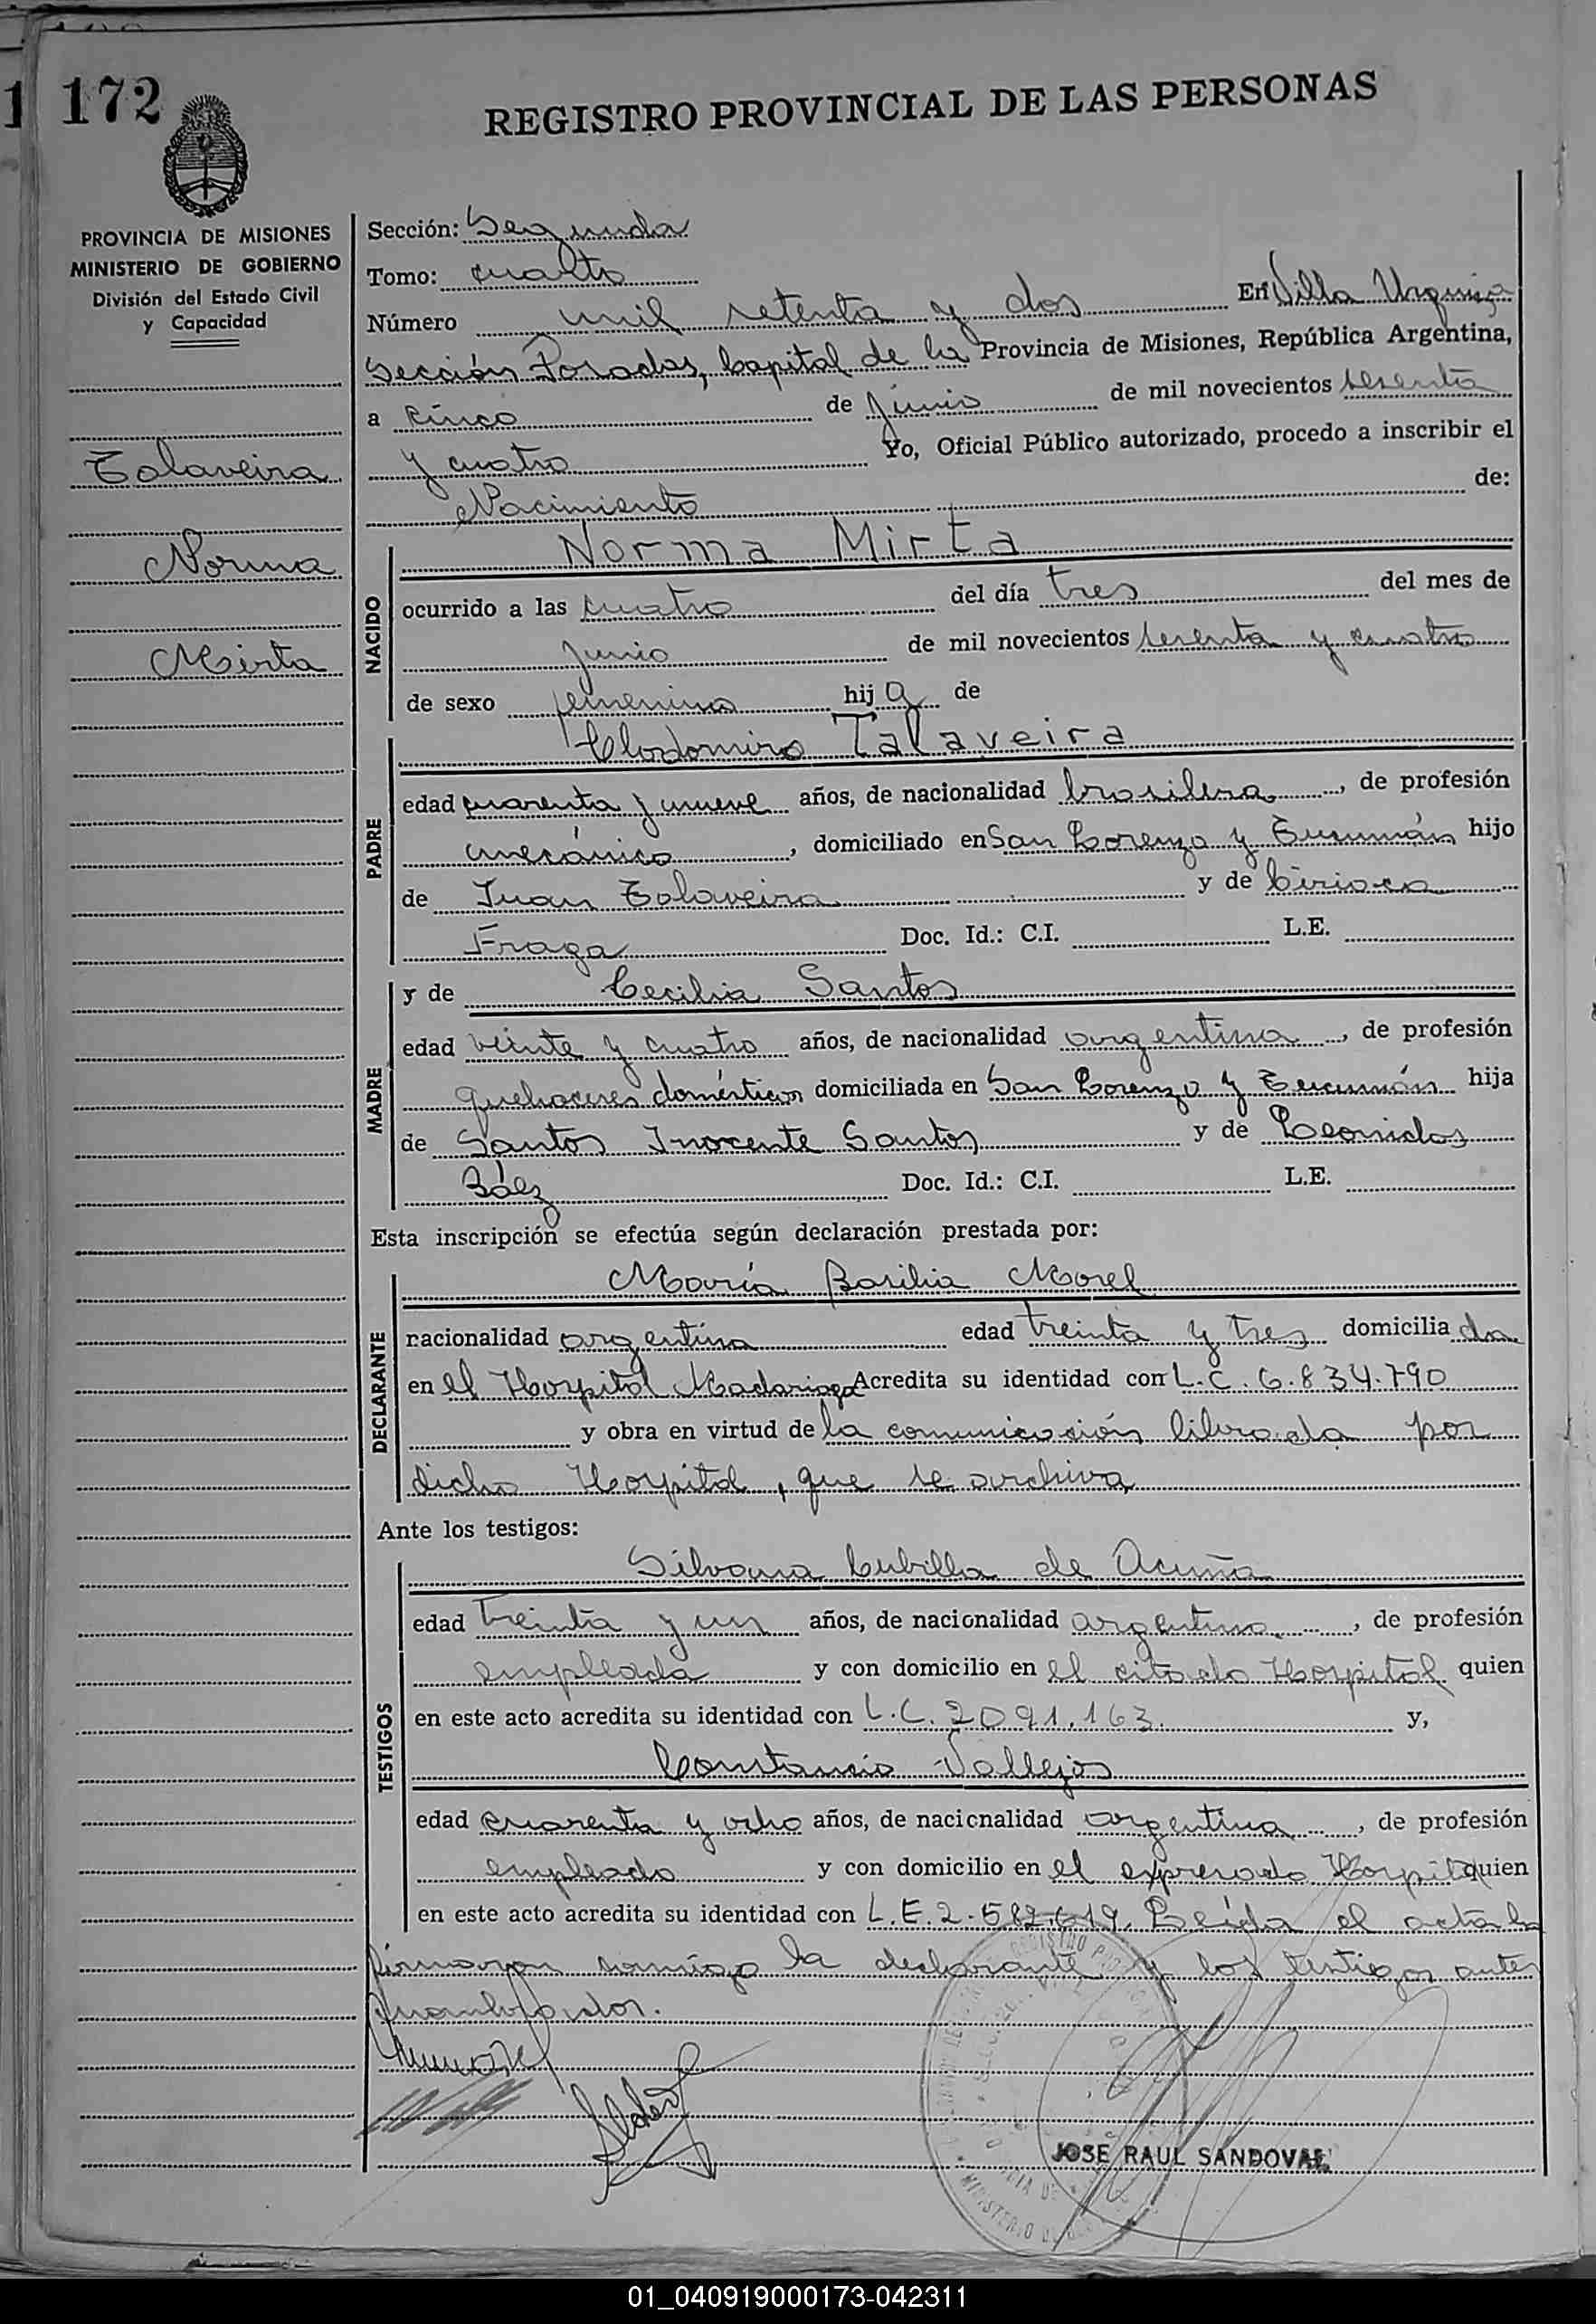 172
REGISTRO PROVINCIAL DE LAS PERSONAS
PROVINCIA DE MISIONES
MINISTERIO DE GOBIERNO
División del Estado Civil
y Capacidad
Talaveira
Norma
Mirta
Sección: Segunda
Tomo: cuarto
Número mil setenta y dos En Villa Urquiza
Sección Posadas, Capital de la Provincia de Misiones, República Argentina,
a cinco de junio de mil novecientos sesenta
y cuatro Yo, Oficial Público autorizado, procedo a inscribir el
Nacimiento de:
NACIDO
Norma Mirta
ocurrido a las cuatro del día tres del mes de
junio de mil novecientos sesenta y cuatro
de sexo femenino hija de
PADRE
Clodomiro Talaveira
edad cuarenta y nueve años, de nacionalidad brasilera, de profesión
mecánico, domiciliado en San Lorenzo y Tucumán hijo
de Juan Talaveira y de Ciriaca
Fraga Doc. Id.: C.I. L.E.
MADRE
y de Cecilia Santos
edad veinte y cuatro años, de nacionalidad argentina, de profesión
quehaceres domésticos domiciliada en San Lorenzo y Tucumán hija
de Santos Inocente Santos y de Leonidas
Báez Doc. Id.: C.I. L.E.
Esta inscripción se efectúa según declaración prestada por:
DECLARANTE
María Basilia Morel
nacionalidad argentina edad treinta y tres domiciliada
en el Hospital Madariaga Acredita su identidad con L.C. 6.834.790
y obra en virtud de la comunicación librada por
dicho Hospital, que se archiva
Ante los testigos:
TESTIGOS
Silvana Cubilla de Acuña
edad treinta y un años, de nacionalidad argentina, de profesión
empleada y con domicilio en el citado Hospital quien
en este acto acredita su identidad con L.C. 2091.163. y,
Constancio Vallejos
edad cuarenta y ocho años, de nacionalidad argentina, de profesión
empleado y con domicilio en el expresado Hospital quien
en este acto acredita su identidad con L.E. 2.587.619. Leída el acta la
firmaron conmigo la declarante y los testigos antes
nombrados.
JOSE RAUL SANDOVAL
01_040919000173-042311